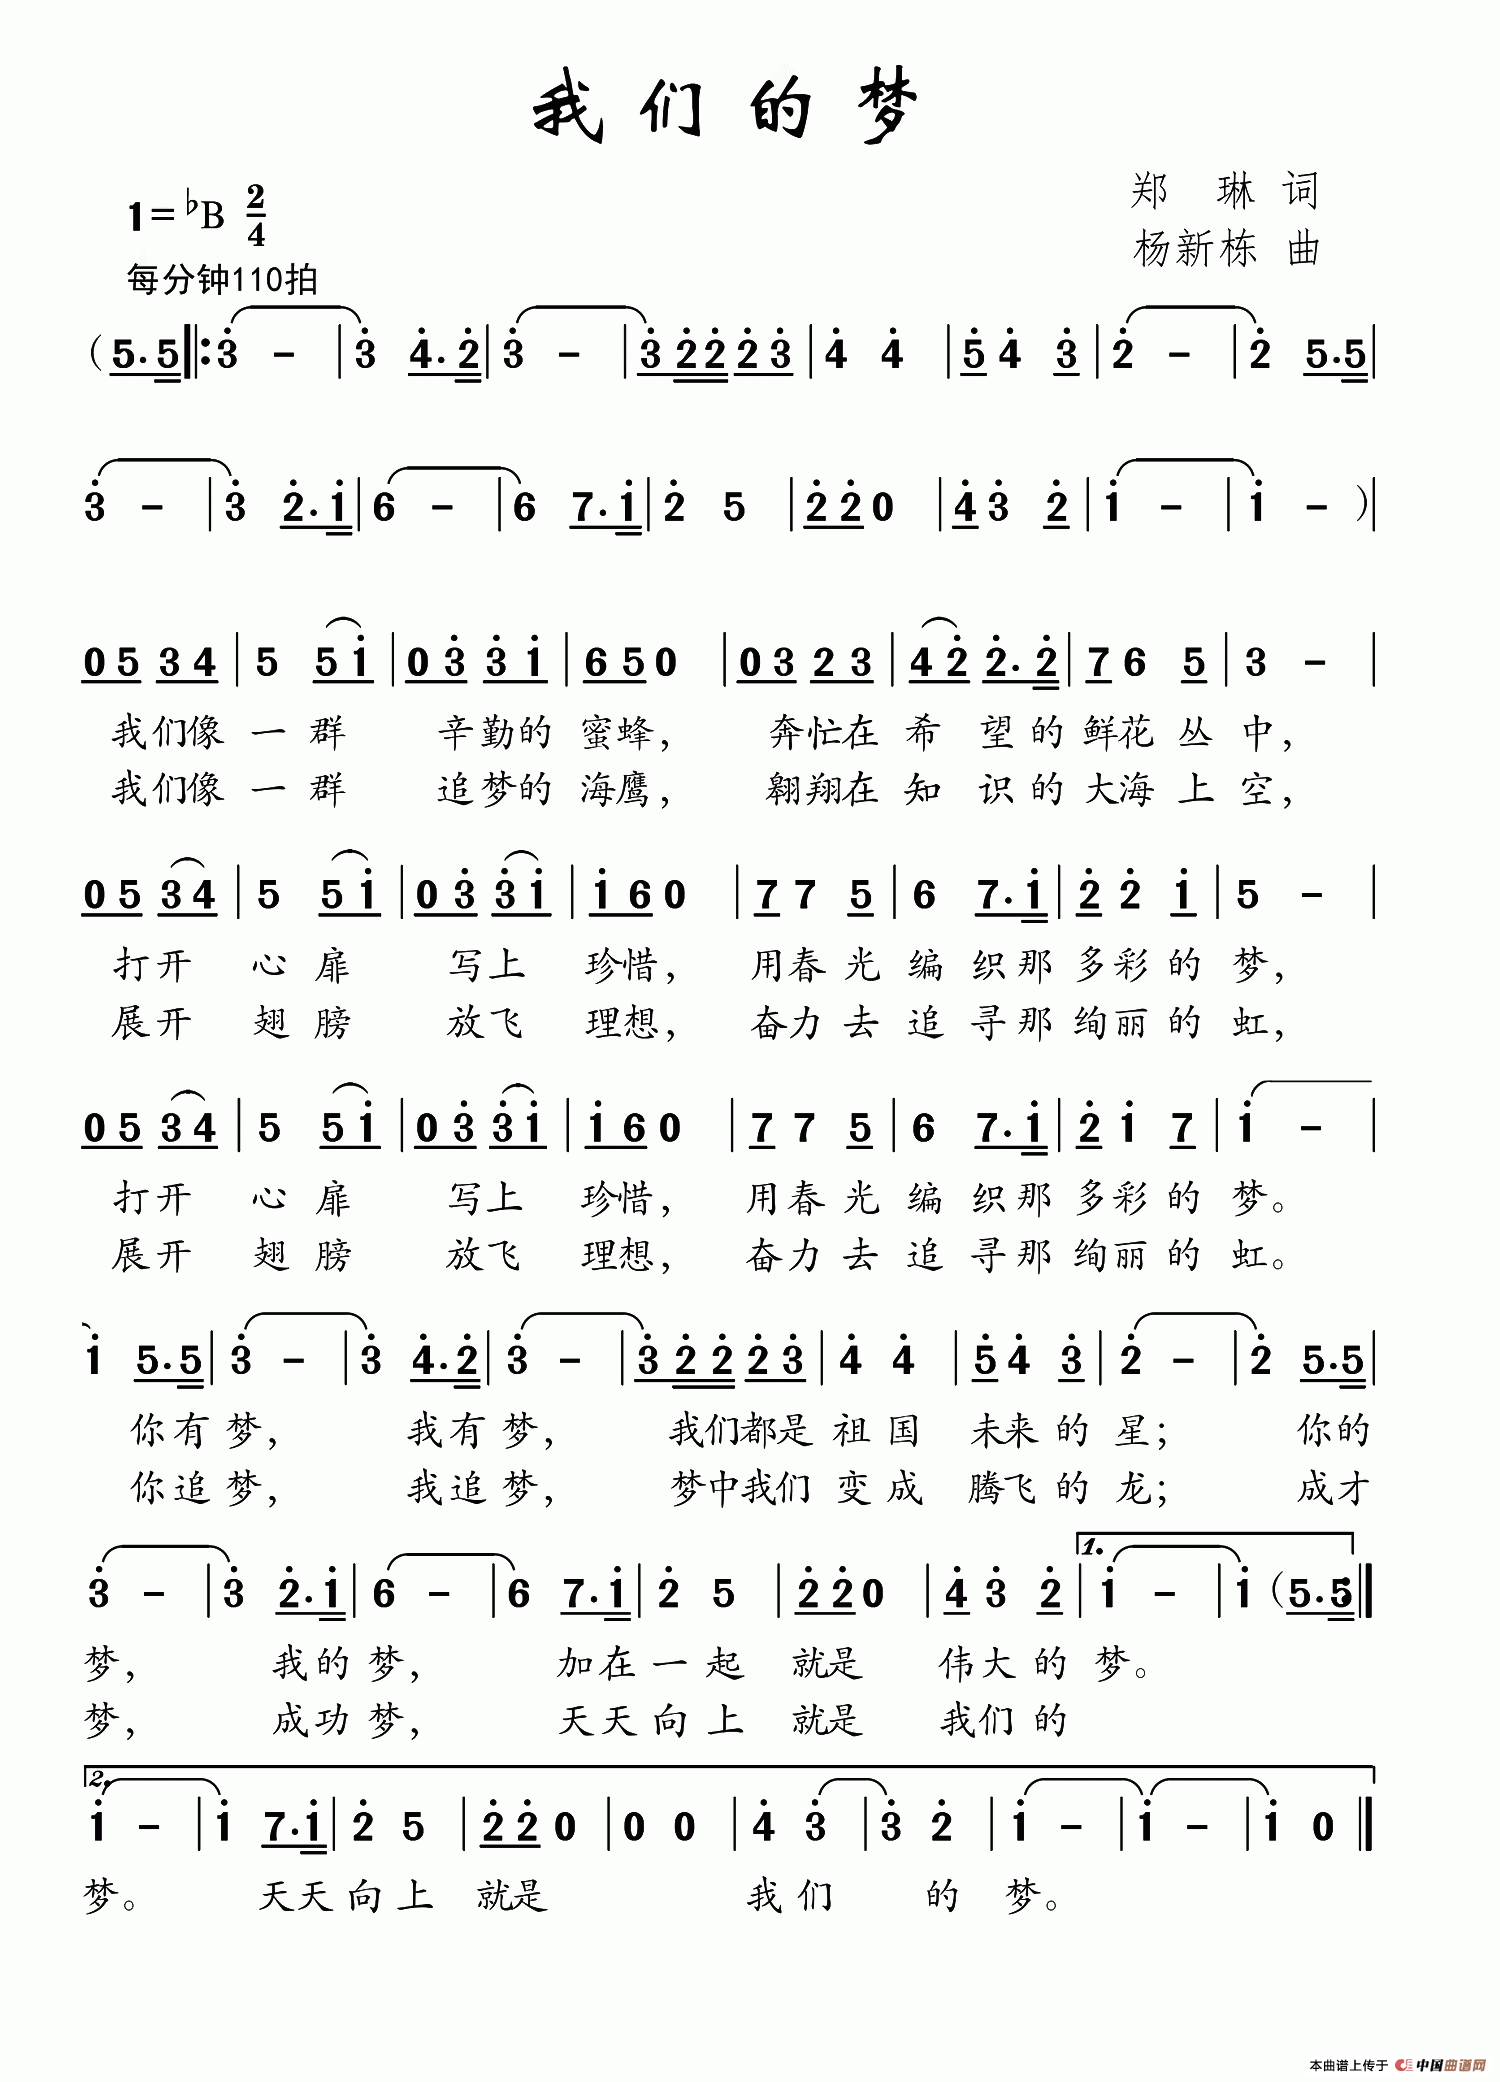 我们的梦
1=♭B 2/4
郑 琳 词
杨新栋 曲
每分钟110拍
(5.5‖:3̇ - | 3̇ 4̇.2̇ | 3̇ - | 3̇ 2̇2̇ 2̇3̇ | 4̇ 4̇ | 5̇ 4̇ 3̇ | 2̇ - | 2̇ 5.5 |
3̇ - | 3̇ 2̇.1̇ | 6 - | 6 7.1̇ | 2̇ 5 | 2̇2̇0 | 4̇ 3̇ 2̇ | 1̇ - | 1̇ - )|
05 34 | 5 51̇ | 03̇ 3̇1̇ | 650 | 03 23 | 42̇ 2̇.2̇ | 7 6 5 | 3 - |
我们像一群 辛勤的蜜蜂， 奔忙在希望的鲜花丛中，
我们像一群 追梦的海鹰， 翱翔在知识的大海上空，
05 34 | 5 51̇ | 03̇ 3̇1̇ | 1̇60 | 7 7 5 | 6 7.1̇ | 2̇ 2̇ 1̇ | 5 - |
打开心扉 写上珍惜， 用春光编织那多彩的梦，
展开翅膀 放飞理想， 奋力去追寻那绚丽的虹，
05 34 | 5 51̇ | 03̇ 3̇1̇ | 1̇60 | 7 7 5 | 6 7.1̇ | 2̇ 1̇ 7 | 1̇ - |
打开心扉 写上珍惜， 用春光编织那多彩的梦。
展开翅膀 放飞理想， 奋力去追寻那绚丽的虹。
1̇ 5.5 | 3̇ - | 3̇ 4̇.2̇ | 3̇ - | 3̇ 2̇2̇ 2̇3̇ | 4̇ 4̇ | 5̇ 4̇ 3̇ | 2̇ - | 2̇ 5.5 |
你有梦， 我有梦， 我们都是祖国未来的星； 你的
你追梦， 我追梦， 梦中我们变成腾飞的龙； 成才
1.
3̇ - | 3̇ 2̇.1̇ | 6 - | 6 7.1̇ | 2̇ 5 | 2̇2̇0 | 4̇ 3̇ 2̇ | 1̇ - | 1̇ (5.5:‖
梦， 我的梦， 加在一起就是伟大的梦。
梦， 成功梦， 天天向上就是我们的
2.
1̇ - | 1̇ 7.1̇ | 2̇ 5 | 2̇2̇0 | 0 0 | 4̇ 3̇ | 3̇ 2̇ | 1̇ - | 1̇ - | 1̇ 0 ‖
梦。 天天向上就是 我们的梦。
本曲谱上传于 中国曲谱网